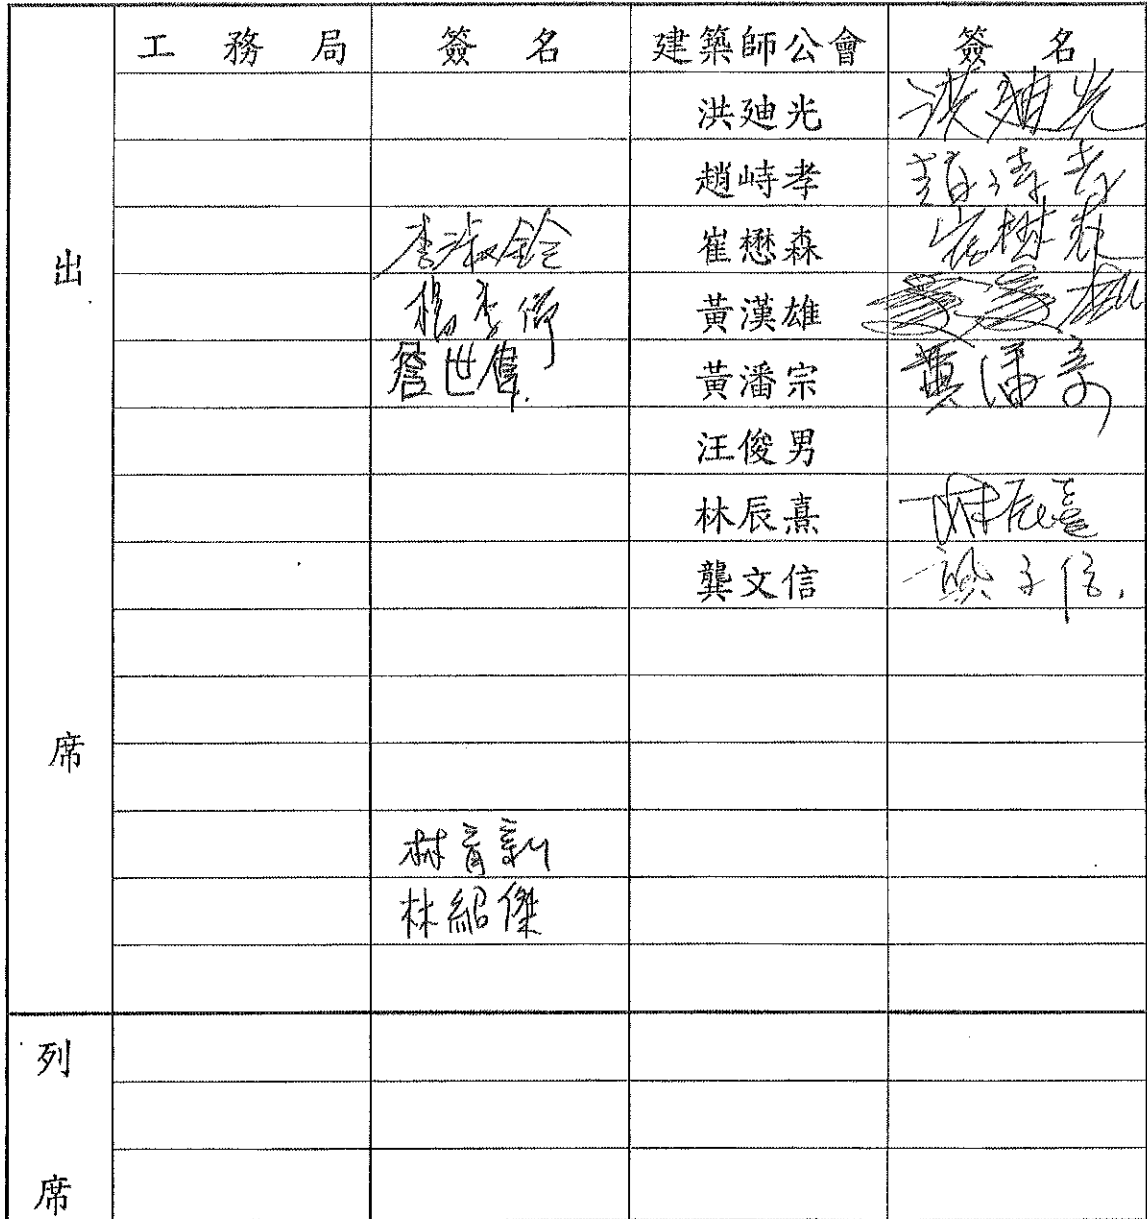 工務局 簽名 建築師公會 簽名
洪廸光 洪廸光
趙峙孝 趙峙孝
出 李淑鈴 崔懋森
黃漢雄
詹世偉 黃潘宗 黃潘宗
汪俊男
林辰熹 林辰熹
龔文信
席
林育新
林紹傑
列
席